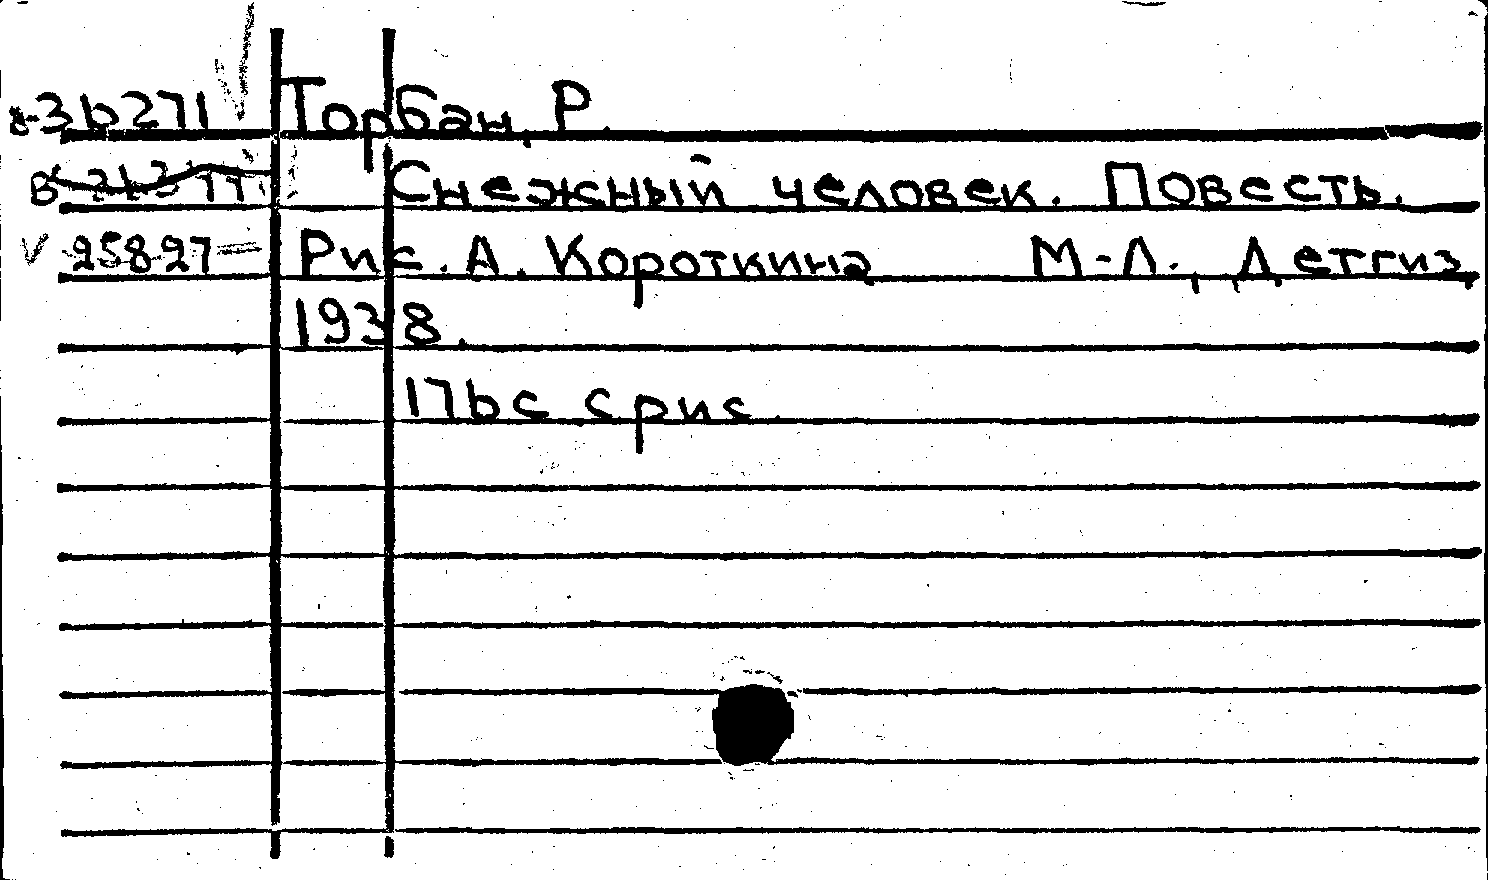 3b271 Торбан, Р.
Снежный человек. Повесть.
V 25827 Рис. А. Короткина М-Л., Детгиз,
1938.
176 с с рис.